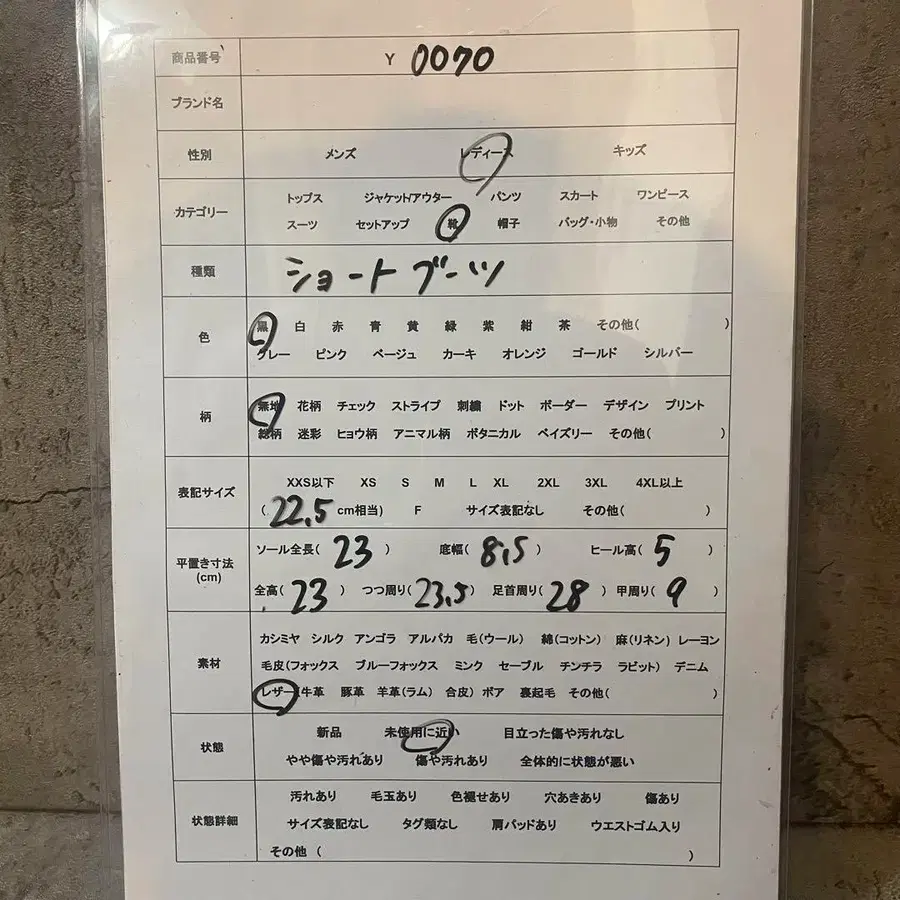 商品番号 Y 0070
ブランド名
性別 メンズ レディース キッズ
カテゴリー トップス ジャケット/アウター パンツ スカート ワンピース
スーツ セットアップ 靴 帽子 バッグ・小物 その他
種類 ショートブーツ
色 黒 白 赤 青 黄 緑 紫 紺 茶 その他( )
グレー ピンク ベージュ カーキ オレンジ ゴールド シルバー
柄 無地 花柄 チェック ストライプ 刺繍 ドット ボーダー デザイン プリント
総柄 迷彩 ヒョウ柄 アニマル柄 ボタニカル ペイズリー その他( )
表記サイズ XXS以下 XS S M L XL 2XL 3XL 4XL以上
( 22.5 cm相当) F サイズ表記なし その他( )
平置き寸法 (cm) ソール全長( 23 ) 底幅( 8.5 ) ヒール高( 5 )
全高( 23 ) つつ周り( 23.5 ) 足首周り( 28 ) 甲周り( 9 )
素材 カシミヤ シルク アンゴラ アルパカ 毛(ウール) 綿(コットン) 麻(リネン) レーヨン
毛皮(フォックス ブルーフォックス ミンク セーブル チンチラ ラビット) デニム
レザー(牛革 豚革 羊革(ラム) 合皮) ボア 裏起毛 その他( )
状態 新品 未使用に近い 目立った傷や汚れなし
やや傷や汚れあり 傷や汚れあり 全体的に状態が悪い
状態詳細 汚れあり 毛玉あり 色褪せあり 穴あきあり 傷あり
サイズ表記なし タグ類なし 肩パッドあり ウエストゴム入り
その他 ( )